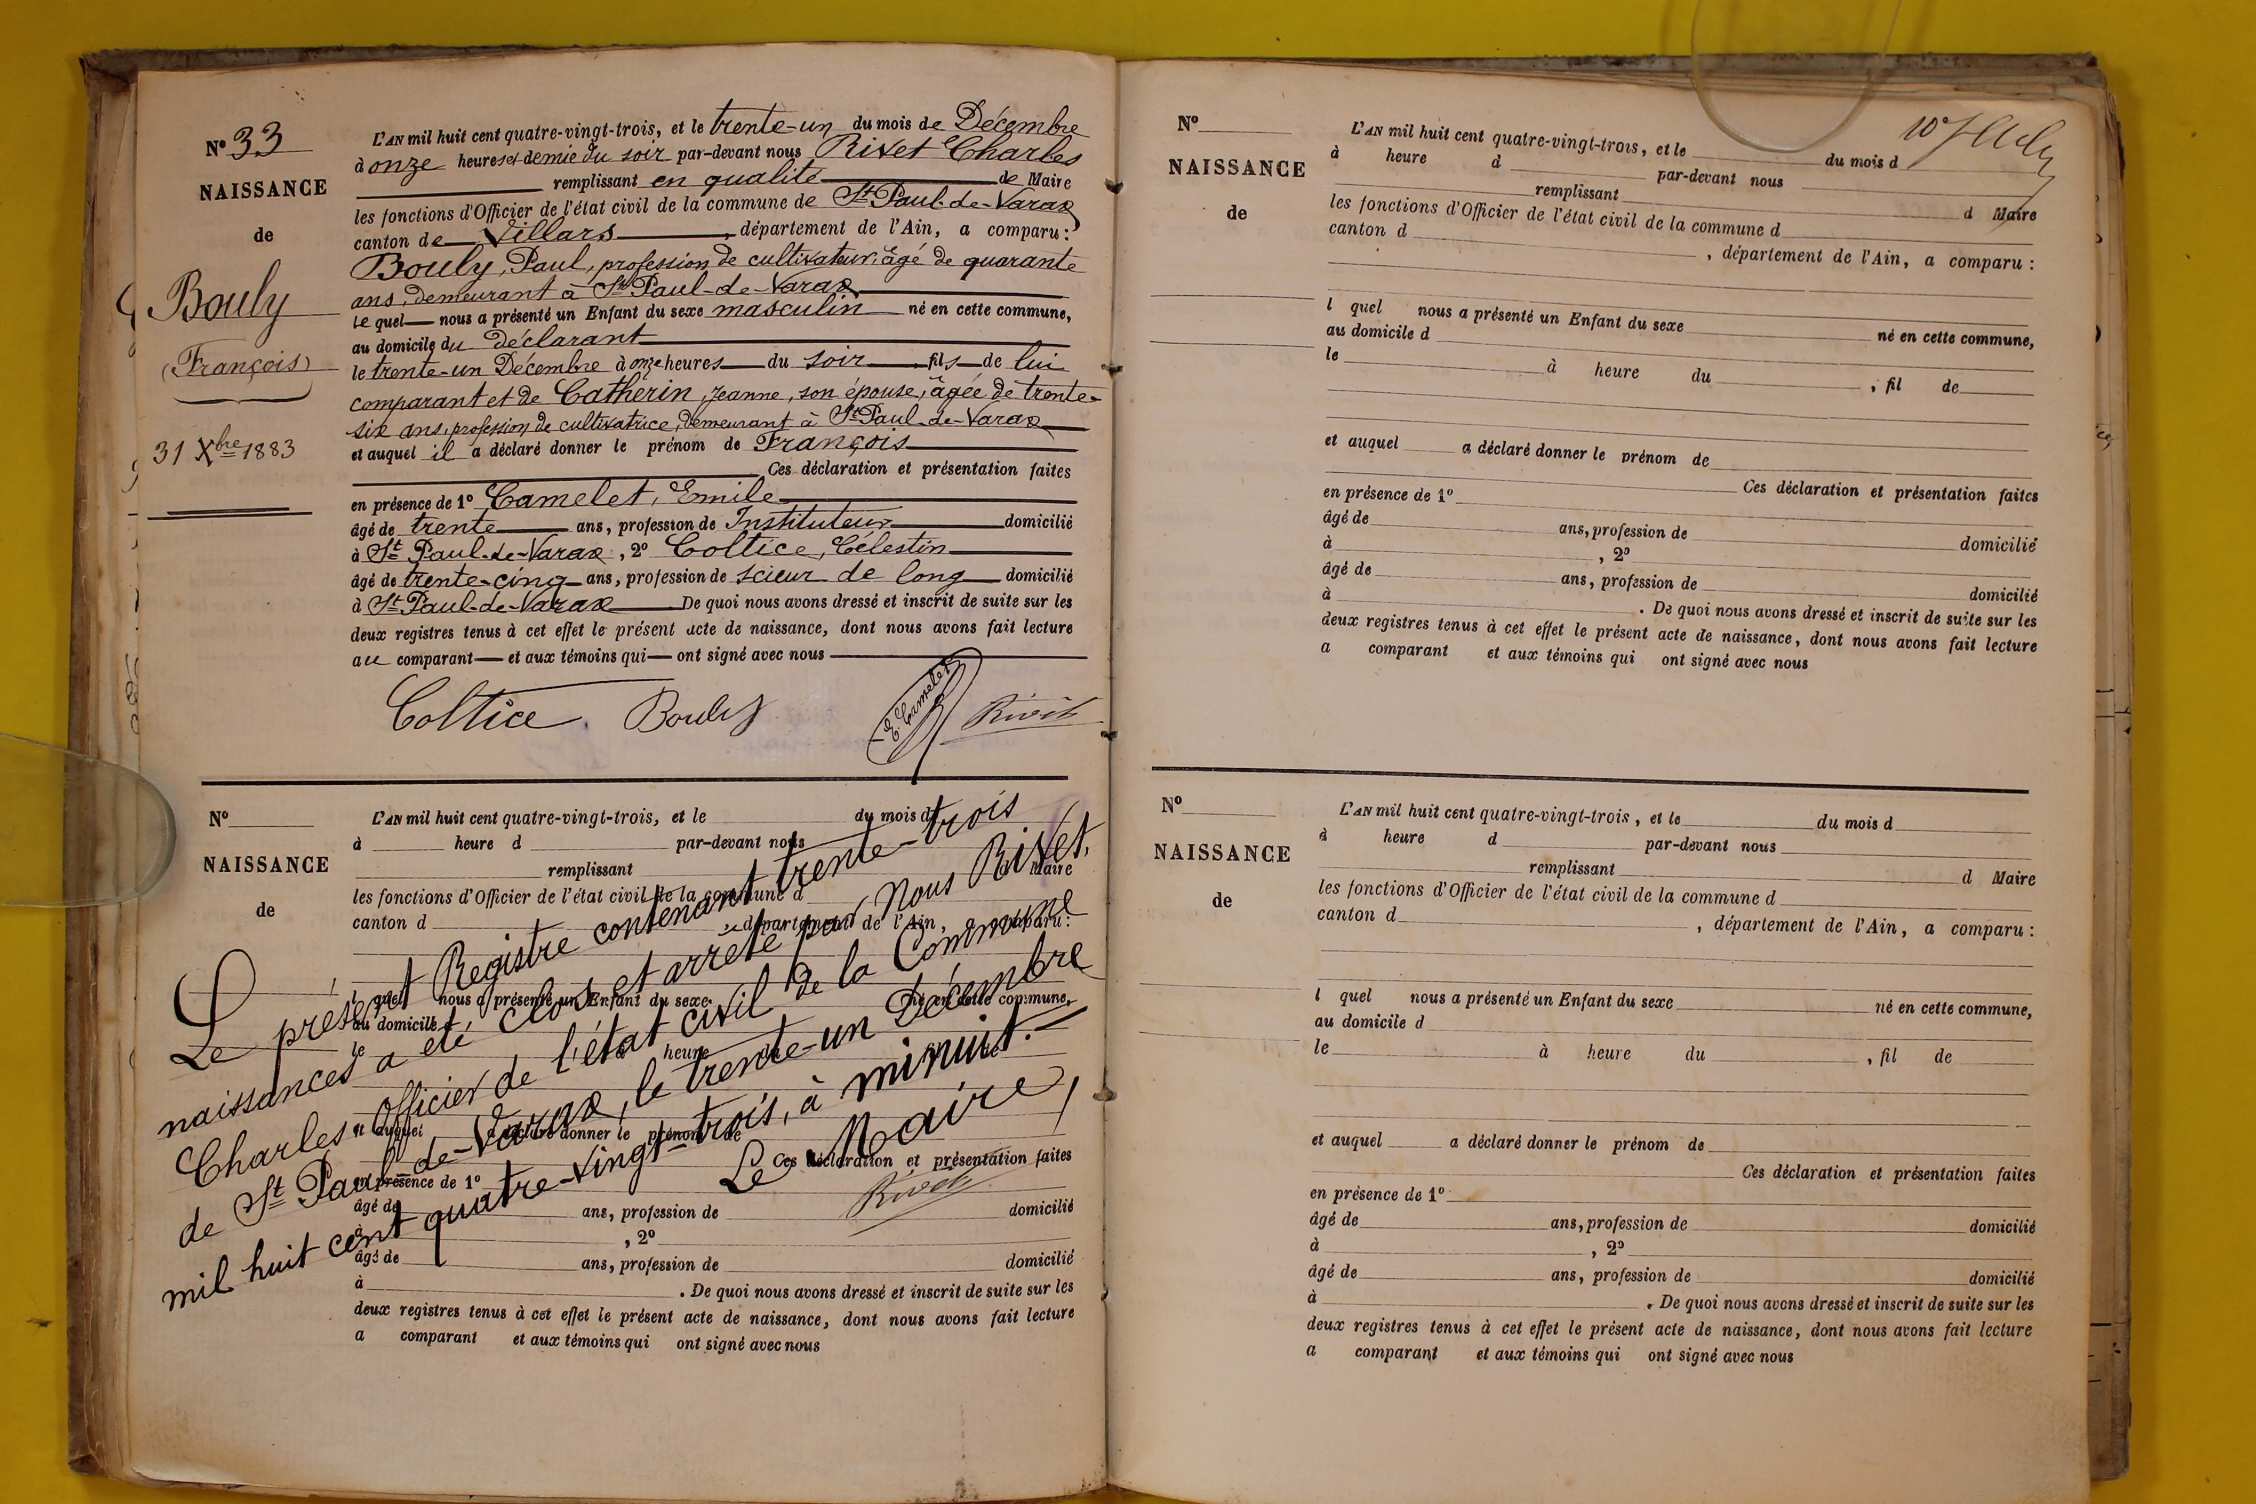 N° 33
NAISSANCE
de
Bouly
(François)
31 Xbre 1883
L'AN mil huit cent quatre-vingt-trois, et le trente-un du mois de Décembre
à onze heures et demie du soir par-devant nous Rivet Charles
remplissant en qualité de Maire
les fonctions d'Officier de l'état civil de la commune de St Paul-de-Varax
canton de Villars, département de l'Ain, a comparu :
Bouly, Paul, profession de cultivateur, âgé de quarante
ans, demeurant à St Paul-de-Varax
lequel nous a présenté un Enfant du sexe masculin né en cette commune,
au domicile du déclarant
le trente-un Décembre à onze heures du soir fils de lui
comparant et de Catherin, Jeanne, son épouse, âgée de trente-
six ans, profession de cultivatrice, demeurant à St Paul-de-Varax
et auquel il a déclaré donner le prénom de François
Ces déclaration et présentation faites
en présence de 1° Camelet, Emile
âgé de trente ans, profession de Instituteur domicilié
à St Paul-de-Varax, 2° Coltice, Célestin
âgé de trente-cinq ans, profession de scieur de long domicilié
à St Paul-de-Varax De quoi nous avons dressé et inscrit de suite sur les
deux registres tenus à cet effet le présent acte de naissance, dont nous avons fait lecture
au comparant et aux témoins qui ont signé avec nous
Coltice Bouly E. Camelet Rivet
N°
NAISSANCE
de
L'AN mil huit cent quatre-vingt-trois, et le du mois d
à heure d par-devant nous
remplissant Maire
les fonctions d'Officier de l'état civil de la commune d
canton d , département de l'Ain, a comparu :
l quel nous a présenté un Enfant du sexe né en cette commune,
au domicile
le heure
et auquel a déclaré donner le prénom de
Ces déclaration et présentation faites
en présence de 1°
âgé de ans, profession de domicilié
à , 2°
âgé de ans, profession de domicilié
à . De quoi nous avons dressé et inscrit de suite sur les
deux registres tenus à cet effet le présent acte de naissance, dont nous avons fait lecture
a comparant et aux témoins qui ont signé avec nous
Le présent Registre contenant trente-trois
naissances a été clos et arrêté par Nous Rivet,
Charles Officier de l'état civil de la Commune
de St Paul-de-Varax, le trente-un Décembre
mil huit cent quatre-vingt-trois, à minuit.
Le Maire,
Rivet
N°
NAISSANCE
de
L'AN mil huit cent quatre-vingt-trois, et le du mois d
à heure d par-devant nous
remplissant d Maire
les fonctions d'Officier de l'état civil de la commune d
canton d , département de l'Ain, a comparu :
l quel nous a présenté un Enfant du sexe né en cette commune,
au domicile d
le à heure du , fil de
et auquel a déclaré donner le prénom de
Ces déclaration et présentation faites
en présence de 1°
âgé de ans, profession de domicilié
à , 2°
âgé de ans, profession de domicilié
à . De quoi nous avons dressé et inscrit de suite sur les
deux registres tenus à cet effet le présent acte de naissance, dont nous avons fait lecture
a comparant et aux témoins qui ont signé avec nous
N°
NAISSANCE
de
L'AN mil huit cent quatre-vingt-trois, et le du mois d
à heure d par-devant nous
remplissant d Maire
les fonctions d'Officier de l'état civil de la commune d
canton d , département de l'Ain, a comparu :
l quel nous a présenté un Enfant du sexe né en cette commune,
au domicile d
le à heure du , fil de
et auquel a déclaré donner le prénom de
Ces déclaration et présentation faites
en présence de 1°
âgé de ans, profession de domicilié
à , 2°
âgé de ans, profession de domicilié
à . De quoi nous avons dressé et inscrit de suite sur les
deux registres tenus à cet effet le présent acte de naissance, dont nous avons fait lecture
a comparant et aux témoins qui ont signé avec nous